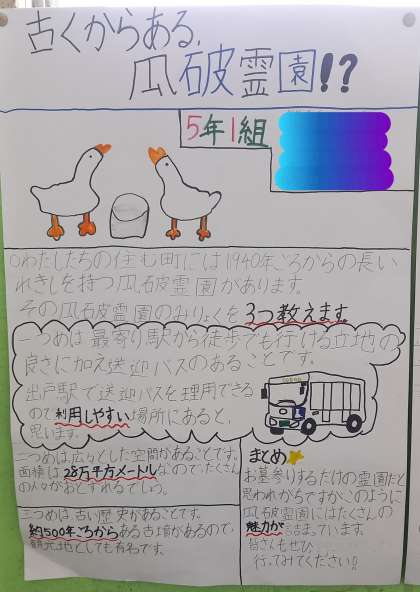 古くからある、
瓜破霊園!?
5年1組
○わたしたちの住む町には1940年ごろからの長い
れきしを持つ瓜破霊園があります。
その瓜破霊園のみりょくを3つ教えます。
一つめは最寄り駅から徒歩でも行ける立地の
良さに加え送迎バスのあることです。
出戸駅で送迎バスを理用できる
ので利用しやすい場所にあると、
思います。
二つめは広々とした空間があることです。
面積は28万平方メートルなのでたくさん
の人々がおとずれるでしょう。
三つめは古い歴史があることです。
約500年ごろからある古墳があるので
観光地としても有名です。
まとめ
お墓参りするだけの霊園だと
思われがちですがこのように
瓜破霊園にはたくさんの
魅力が詰まっています。
皆さんもぜひ
行ってみてください!!